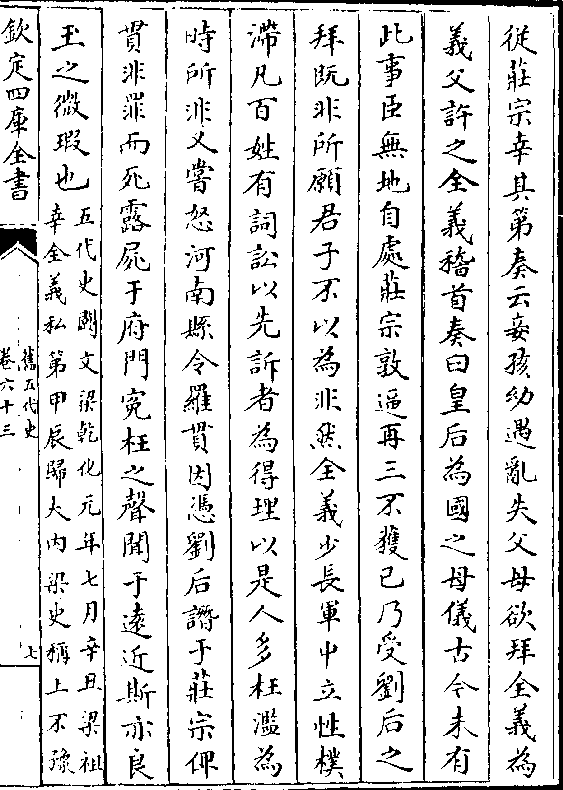 從莊宗幸其第奏云妾孩幼遇亂失父母欲拜全義為
義父許之全義稽首奏曰皇后為國之母儀古今未有
此事臣無地自處莊宗敦逼再三不獲已乃受劉后之
拜既非所願君子不以為非然全義少長軍中立性樸
滯凡百姓有詞訟以先訴者為得理以是人多枉濫為
時所非又嘗怒河南縣令羅貫因憑劉后譖于莊宗俾
貫非罪而死露屍于府門寃枉之聲聞于遠近斯亦良
玉之微瑕也
五代史闕文梁乾化元年七月辛丑梁祖
幸全義私第甲辰歸大內梁史稱上不豫
欽定四庫全書
舊五代史
卷六十三
七